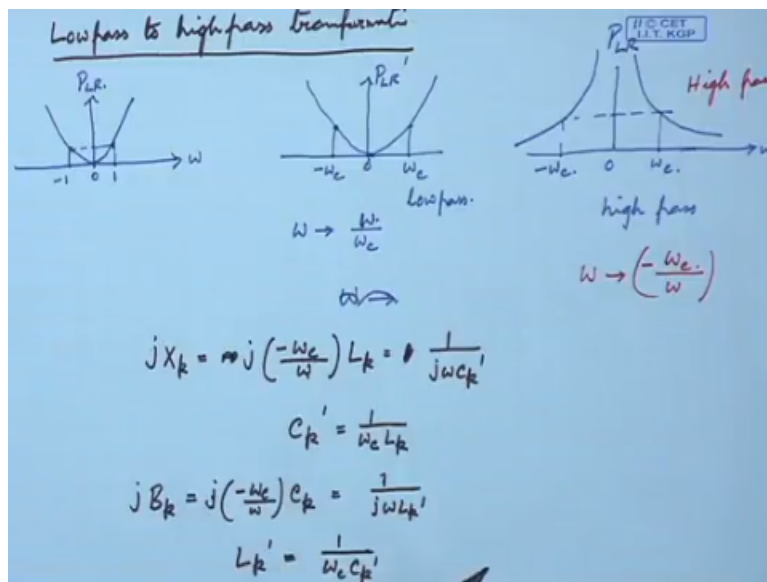 Lowpass to highpass transformati
© CET
I.I.T. KGP
P_LR.
-1 0 1 ω
P_LR'
-ωc 0 ωc
lowpass.
ω → ω/ωc
P_LR
High pas
-ωc. 0 ωc. ω
high pass
ω → (-ωc./ω)
jX_k = j(-ωc/ω)L_k = 1/(jωC_k')
C_k' = 1/(ωc L_k)
jB_k = j(-ωc/ω)C_k = 1/(jωL_k')
L_k' = 1/(ωc C_k')